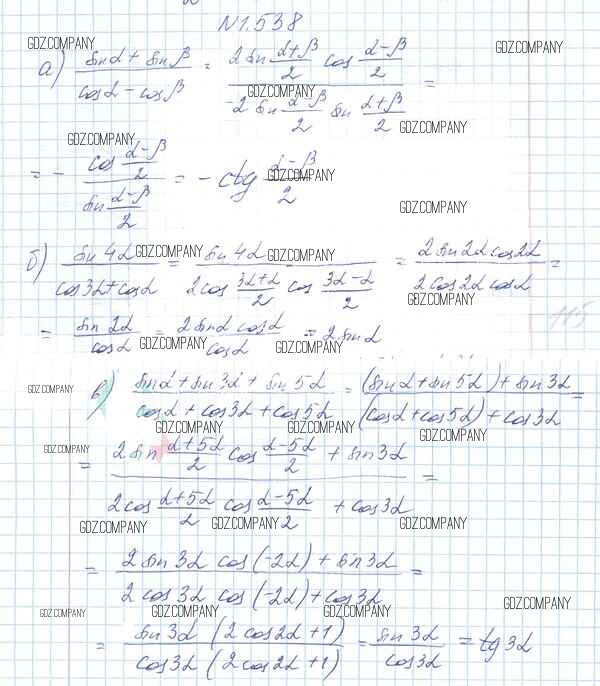 N1.538
GDZ.COMPANY GDZ.COMPANY
а) (sinα + sinβ)/(cosα - cosβ) = (2 sin (α+β)/2 cos (α-β)/2)/(-2 sin (α-β)/2 sin (α+β)/2) =
GDZ.COMPANY
GDZ.COMPANY
GDZ.COMPANY
= - (cos (α-β)/2)/(sin (α-β)/2) = - ctg (α-β)/2
GDZ.COMPANY
GDZ.COMPANY
б) (sin 4α)/(cos3α+cosα) = (sin 4α)/(2cos (3α+α)/2 cos (3α-α)/2) = (2 sin2α cos2α)/(2 cos2α cosα) =
GDZ.COMPANY GDZ.COMPANY
GDZ.COMPANY
= (sin 2α)/(cosα) = (2 sinα cosα)/(cosα) = 2 sinα
115
GDZ.COMPANY GDZ.COMPANY
в) (sinα + sin 3α + sin 5α)/(cosα + cos3α + cos5α) = ((sinα + sin 5α) + sin 3α)/((cosα + cos5α) + cos3α) =
GDZ.COMPANY
GDZ.COMPANY GDZ.COMPANY GDZ.COMPANY
= (2 sin (α+5α)/2 cos (α-5α)/2 + sin3α)/(2 cos (α+5α)/2 cos (α-5α)/2 + cos3α) =
GDZ.COMPANY GDZ.COMPANY
GDZ.COMPANY GDZ.COMPANY GDZ.COMPANY
= (2 sin 3α cos(-2α) + sin3α)/(2 cos 3α cos(-2α) + cos3α) =
GDZ.COMPANY
GDZ.COMPANY GDZ.COMPANY GDZ.COMPANY
= (sin 3α (2 cos2α + 1))/(cos3α (2 cos2α + 1)) = (sin 3α)/(cos3α) = tg 3α